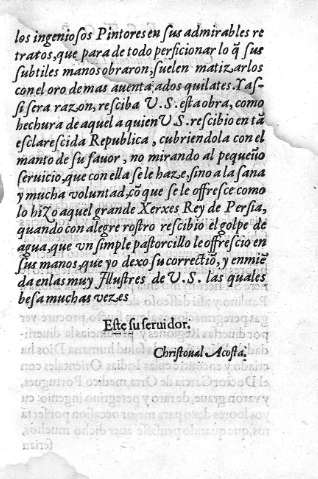 los ingeniosos Pintores en sus admirables re
tratos, que para de todo perficionar lo q̃ sus
subtiles manos obraron, suelen matizarlos
con el oro de mas auentajados quilates. Y as-
si sera razon, resciba V.S. esta obra, como
hechura de aquel a quien V.S. rescibio en tã
esclarescida Republica, cubriendola con el
manto de su fauor, no mirando al pequeño
seruicio, que con ella se le haze, sino a la sana
y mucha voluntad, cõ que se le offresce como
lo hizo aquel grande Xerxes Rey de Persia,
quando con alegre rostro rescibio el golpe de
agua, que vn simple pastorcillo le offrescio en
sus manos, que yo dexo su correctiõ, y enmiẽ
da en las muy Illustres de V.S. las quales
besa muchas vezes
Este su seruidor.
Christoual Acosta.